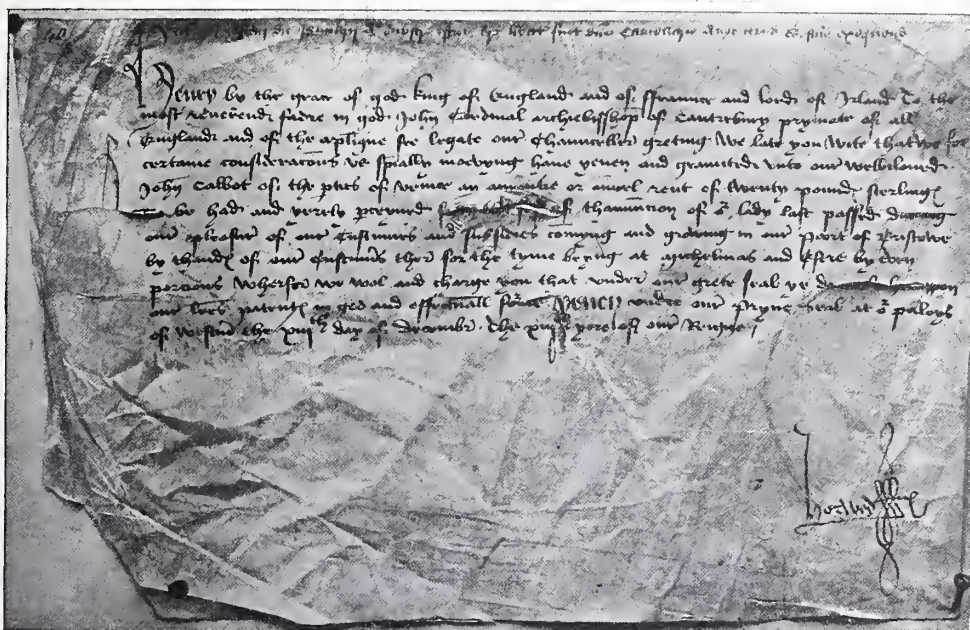 Henry by the grace of god king of England and of ffraunce and lord of Irland To the
most reverend fadre in god John Cardinal archebisshop of Cantrebury prymate of all
England and of the aplique see legate our Chaunceller greting We late you wite that we for
certaine consideracions us spally moevyng have yeven and graunted unto our welbiloved
John Calbot of the pties of Venice an annuitie or annuel rent of twenty pound sterling
be had and yerely pceyved of thanunciacon of or lady last passed during
our pleasur of our Custumes and subsidies comyng and growing in our Poort of Bristowe
by thand of our Custumers ther for the tyme beyng at Michelmas and Estre by even
porcions Wherfor we wol and charge you that under our grete seal ye do
our lres patent in good and effectuall forme Yeven undre our Pryve Seal at or paloys
of Westm the xiijth day of decembre The xiijth yere of our Reigne